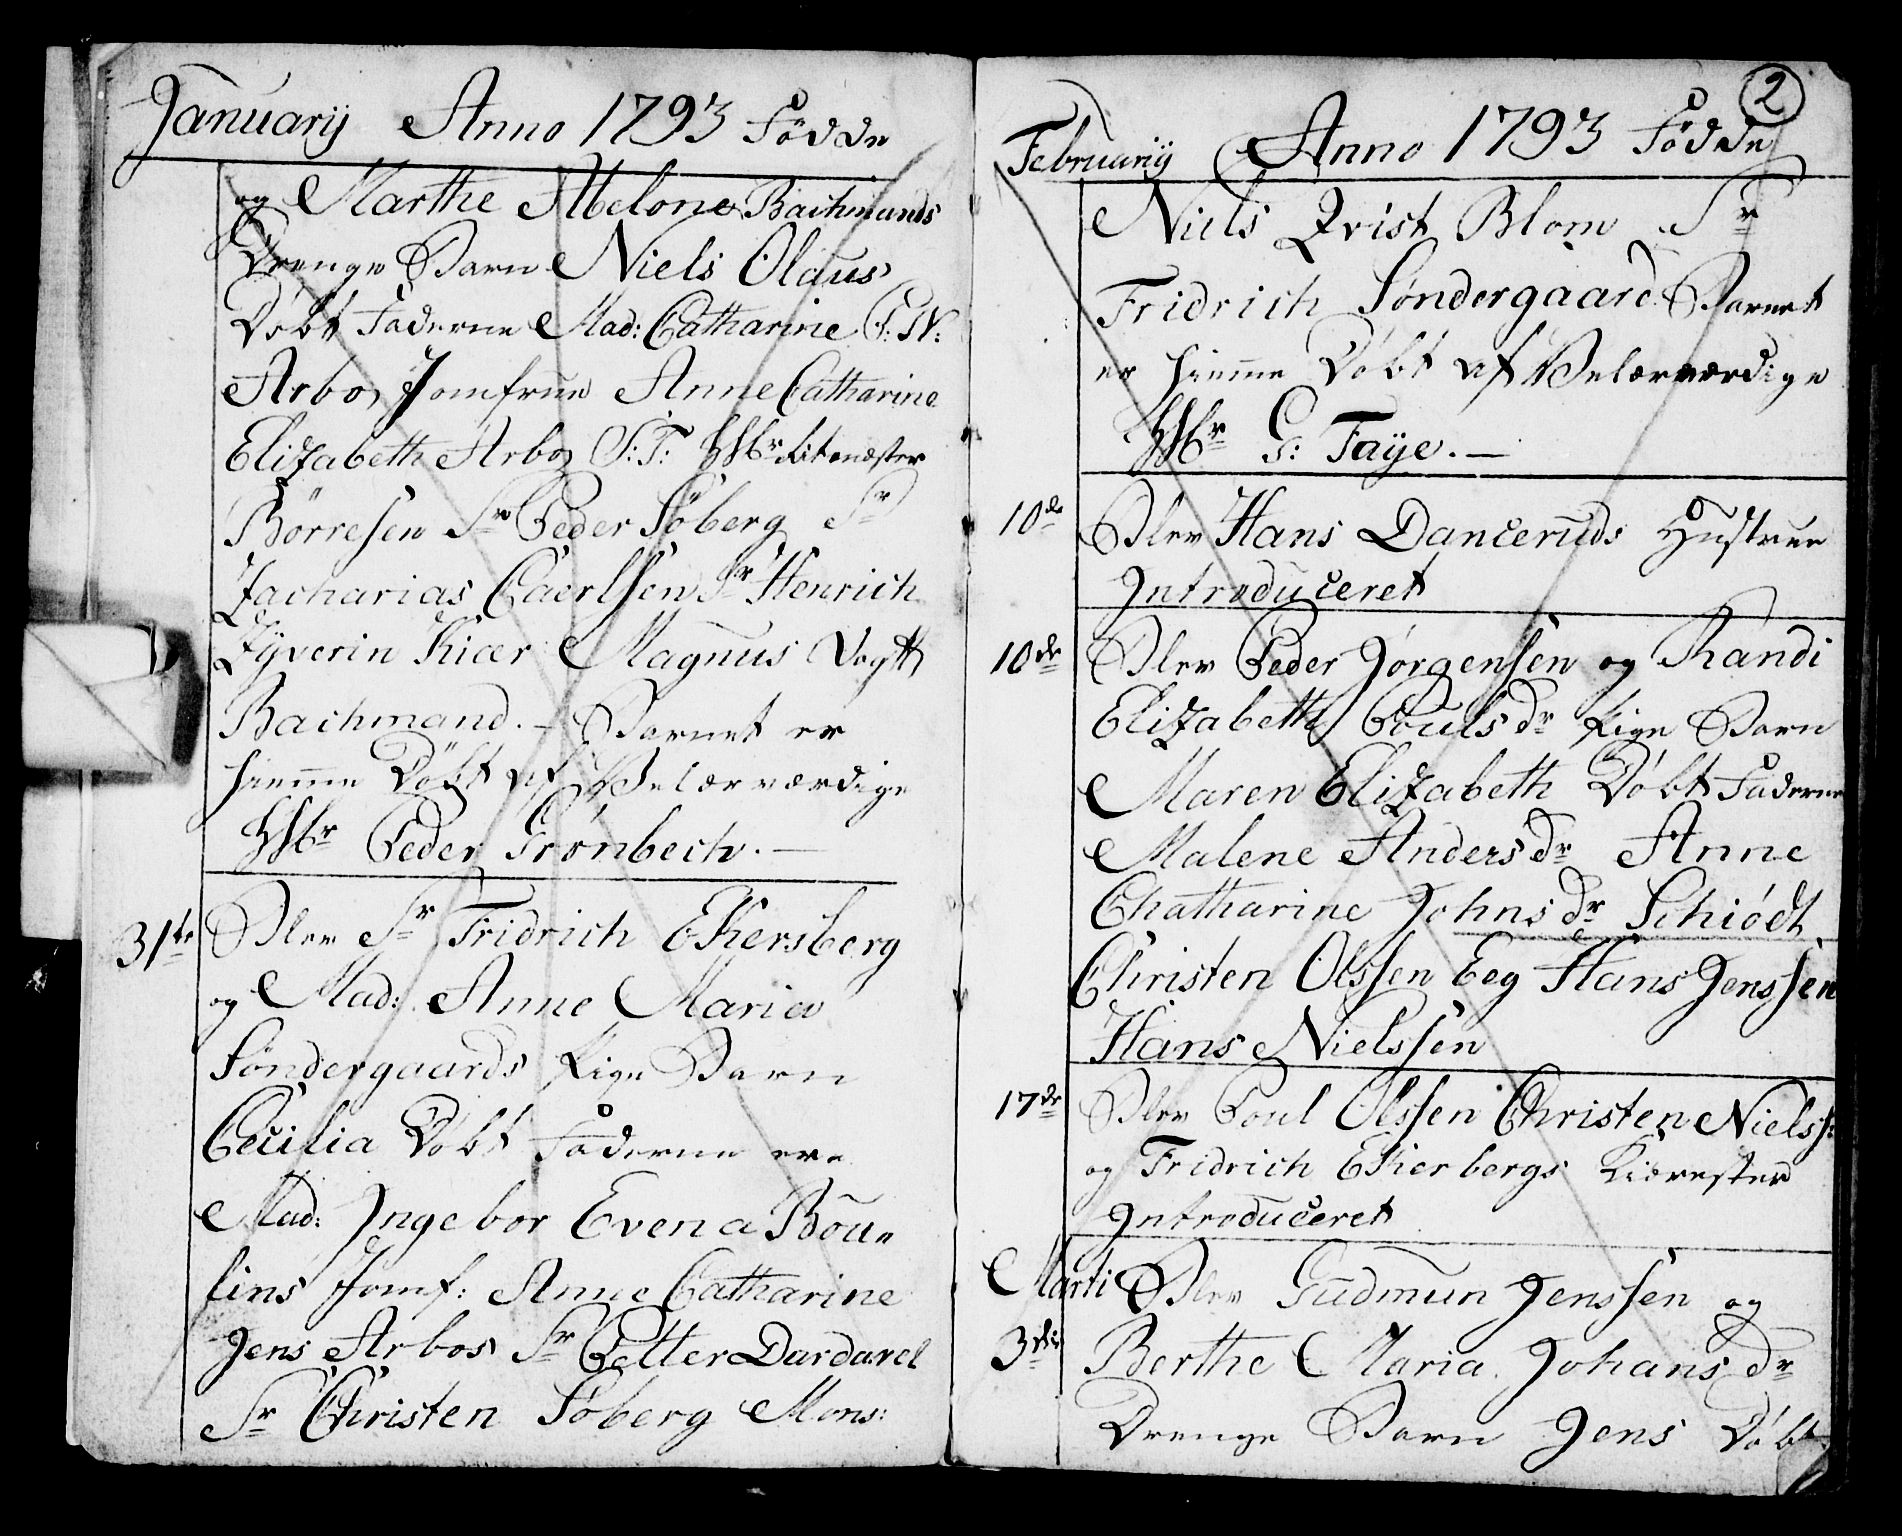 Januarij Anno 1793 Födde
og Marthe Abelone Bachmands
Drenge Barn Niels Olaus
Døbt Faderne Mad: Catharine P: N:
Arbo, Jomfrue Anne Catharine
Elizabeth Arbo S: T: HHr
Börresen Sr Peder Söberg Sr
Zacharias Caerlsen Sr Henrich
Zyverin Kicer Magnus Vogtt
Bachmand. – Barnet er
hiemme Döbt af Velærværdige
HHr Peder Grönbech. —
31te Blev Sr Fridrich Ekersberg
og Mad: Anne Maria
Söndergaards Pige Barn
Cecilia Døbt Faderne ere
Mad: Ingebor Evena Bou-
lins Jomf: Anne Catharine
Jens Arbos Sr Petter Dardavel
Sr Christen Söberg Mons:
2
Februarij Anno 1793 Födde
Niels Qvist Blom Sr
Fridrich Søndergaard Barnet
er hiemme Døbt af Velærværdige
HHr G: Faye. —
10de Blev Hans Danceruds Hustrue
Introduceret
10de Blev Peder Jørgensen og Randi
Elizabeth Poulsdr Pige Barn
Maren Elizabeth Døbt Faderne
Malene Andersdr Anne
Chatharine Johnsdr Schiødt
Christen Olssen Eeg Hans Jenssen
Hans Nielssen
17de Blev Poul Olssen Christen Nielss:
og Fridrich Ekerbergs Kiærester
Introduceret
Marti Blev Gudmun Jenssen og
3die Berthe Maria Johansdr
Drenge Barn Jens Døbt